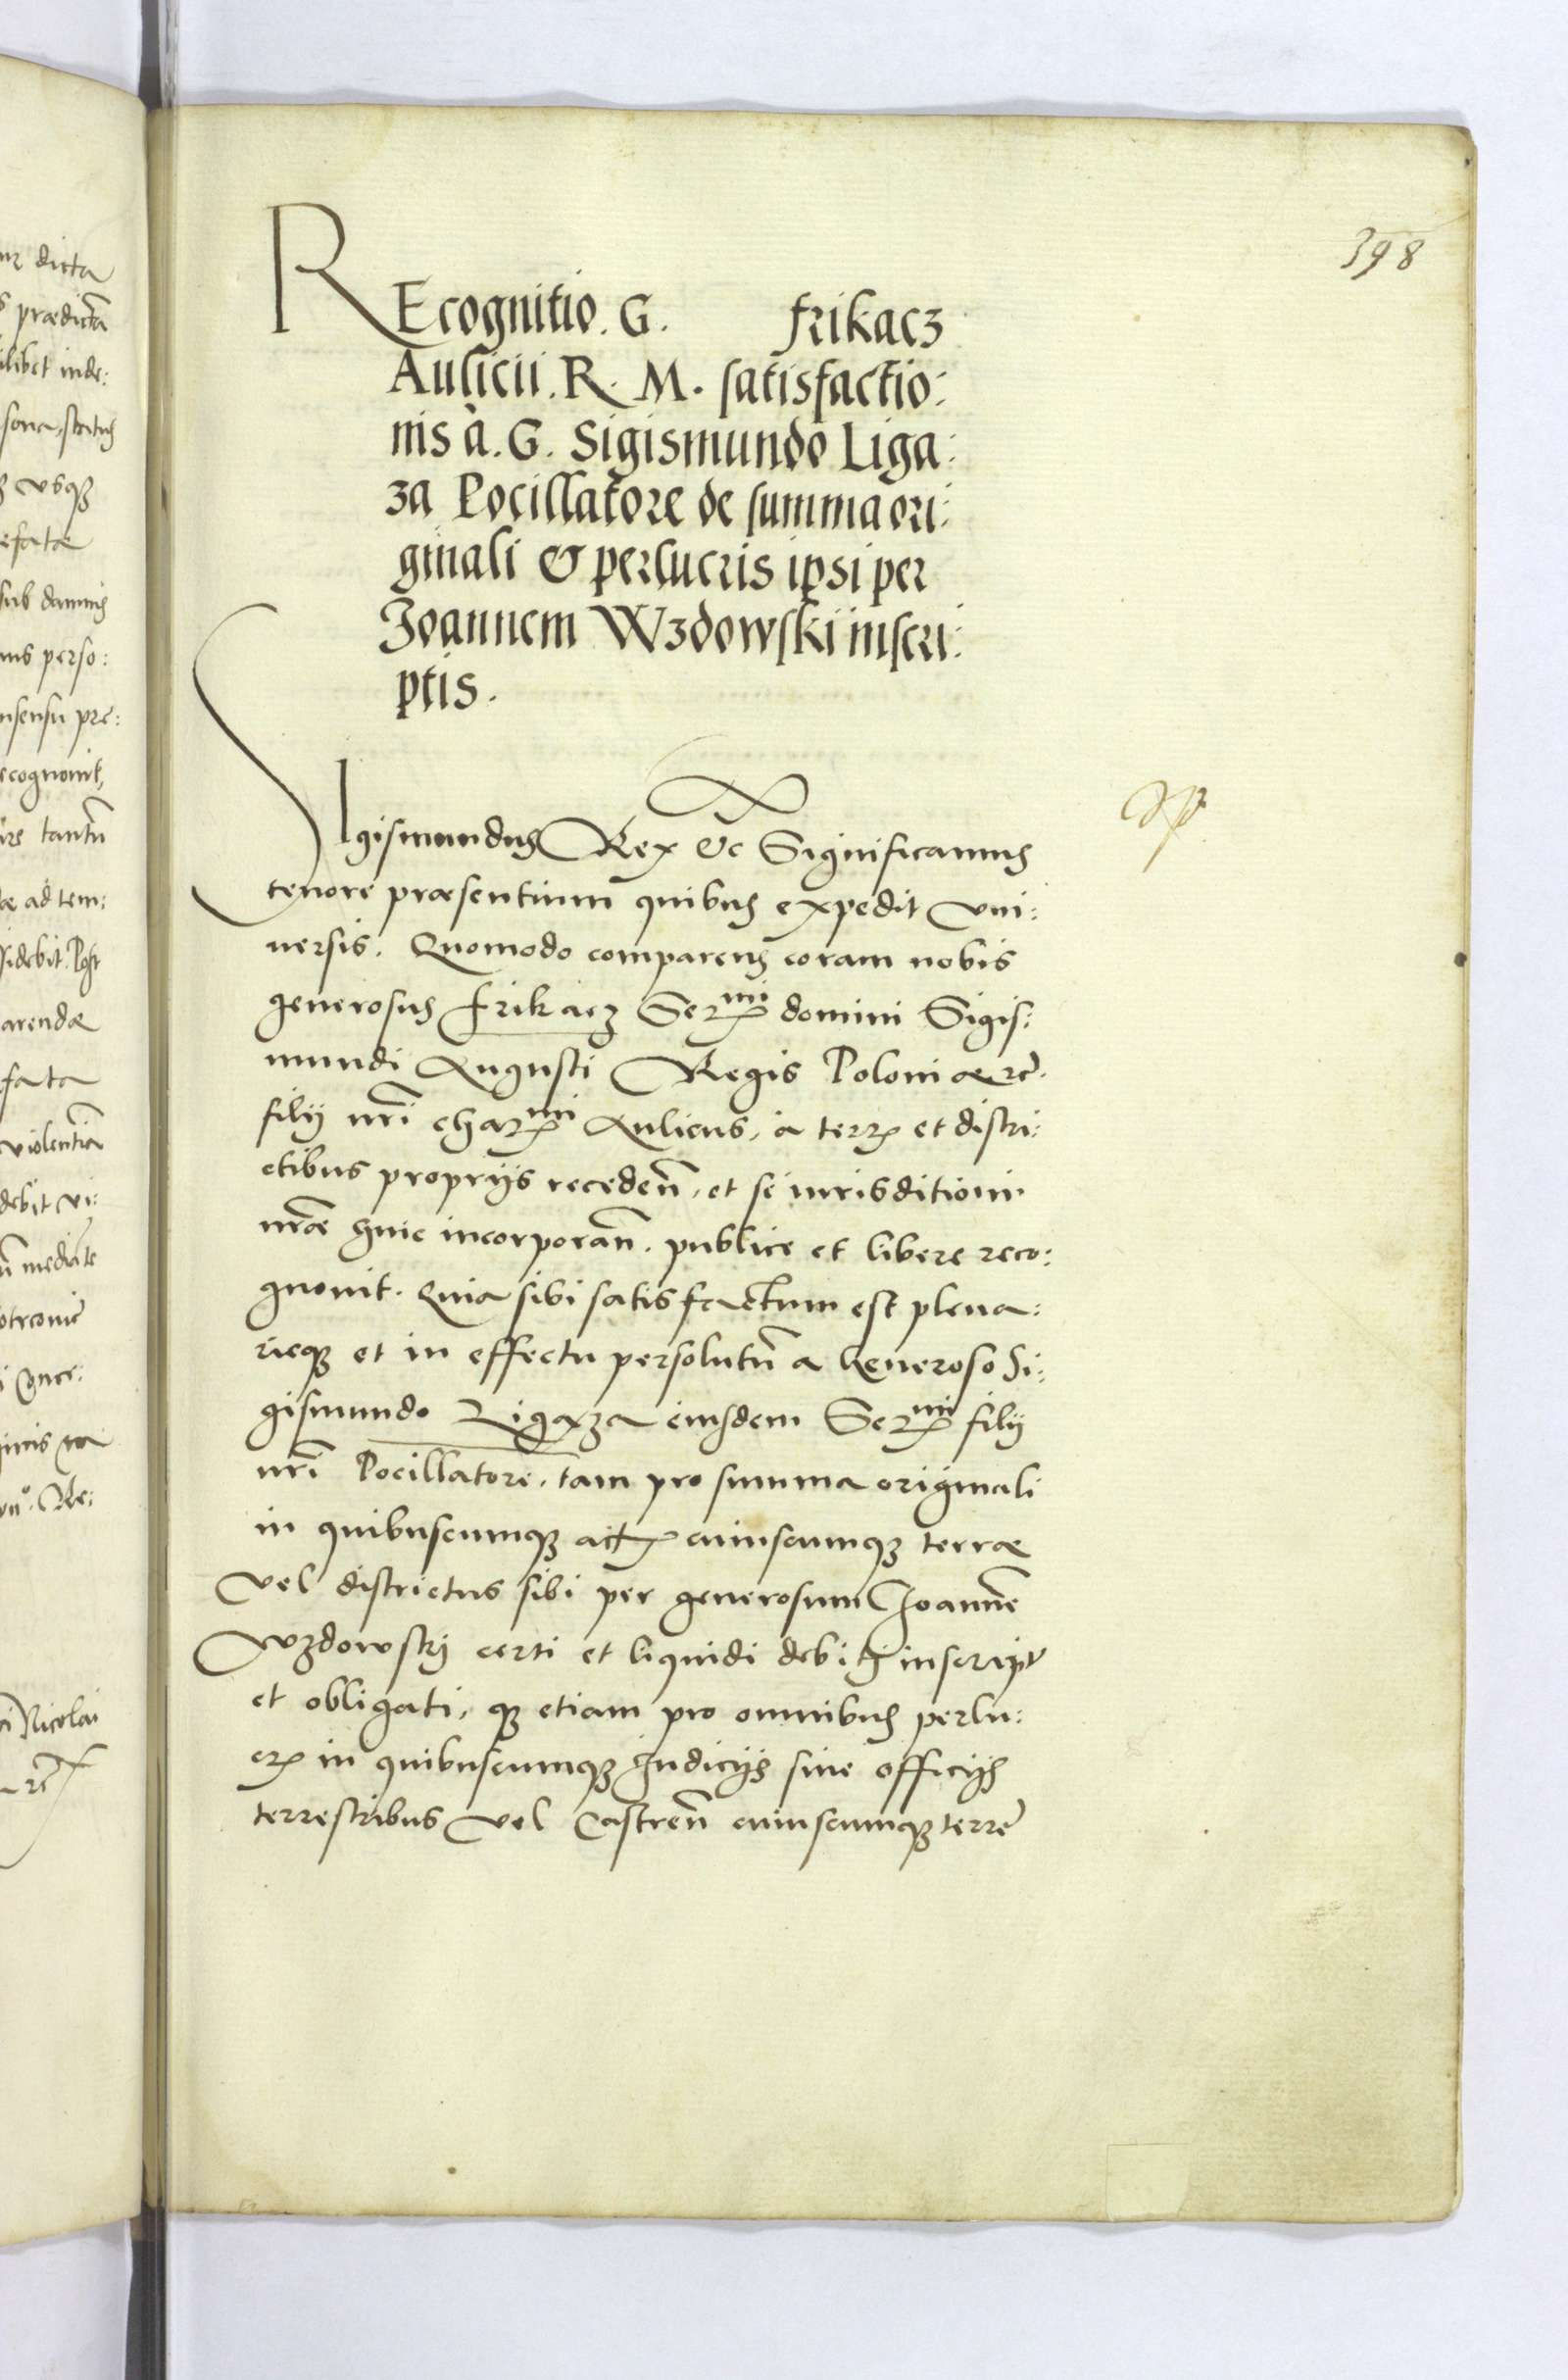 398
REcognitio. G. frikacz
Aulicii. R. M. satisfactio:
nis à. G. Sigismundo Liga:
za Pocillatore de summa ori:
ginali & perlucris ipsi per
Joannem Wzdowskÿ inscri:
ptis.
SIgismundus Rex &c Significamus
tenore præsentium quibus expedit vni:
uersis. Quomodo comparens coram nobis
generosus frikacz Serᵐⁱ domini Sigis:
mundi Augusti Regis Poloniæ ꝛc̃.
filÿ nr̃i charᵐⁱ Aulicus, a terrꝭ et distri:
ctibus proprÿs recedeñ, et se iurisditioni
nr̃æ huic incorporañ. publice et libere reco:
gnouit. Quia sibi satisfactum est plena:
rieqꝫ et in effectu persolutũ a Generoso Si:
gismundo Ligaza eiusdem Serᵐⁱ filÿ
nr̃i Pocillatore, tam pro summa originali
in quibuscumqꝫ actꝭ cuiuscumqꝫ terræ
vel districtus sibi per generosum Joannẽ
Wzdowskÿ certi et liquidi debitj inscript
et obligati, qꝫ etiam pro omnibus perlu:
crꝭ in quibuscumqꝫ Judicÿs siue officÿs
terrestribus vel Castreñ cuiuscumqꝫ terrẽ
dicta
prædictã
ilibet inde:
vsqꝫ
efatæ
sub damnis
perso:
nsensu pre:
ecognouit,
tantũ
æ ad tem:
sidebit. Post
arendæ
fata
violentiã
debit vi:
mediate
Nicolai